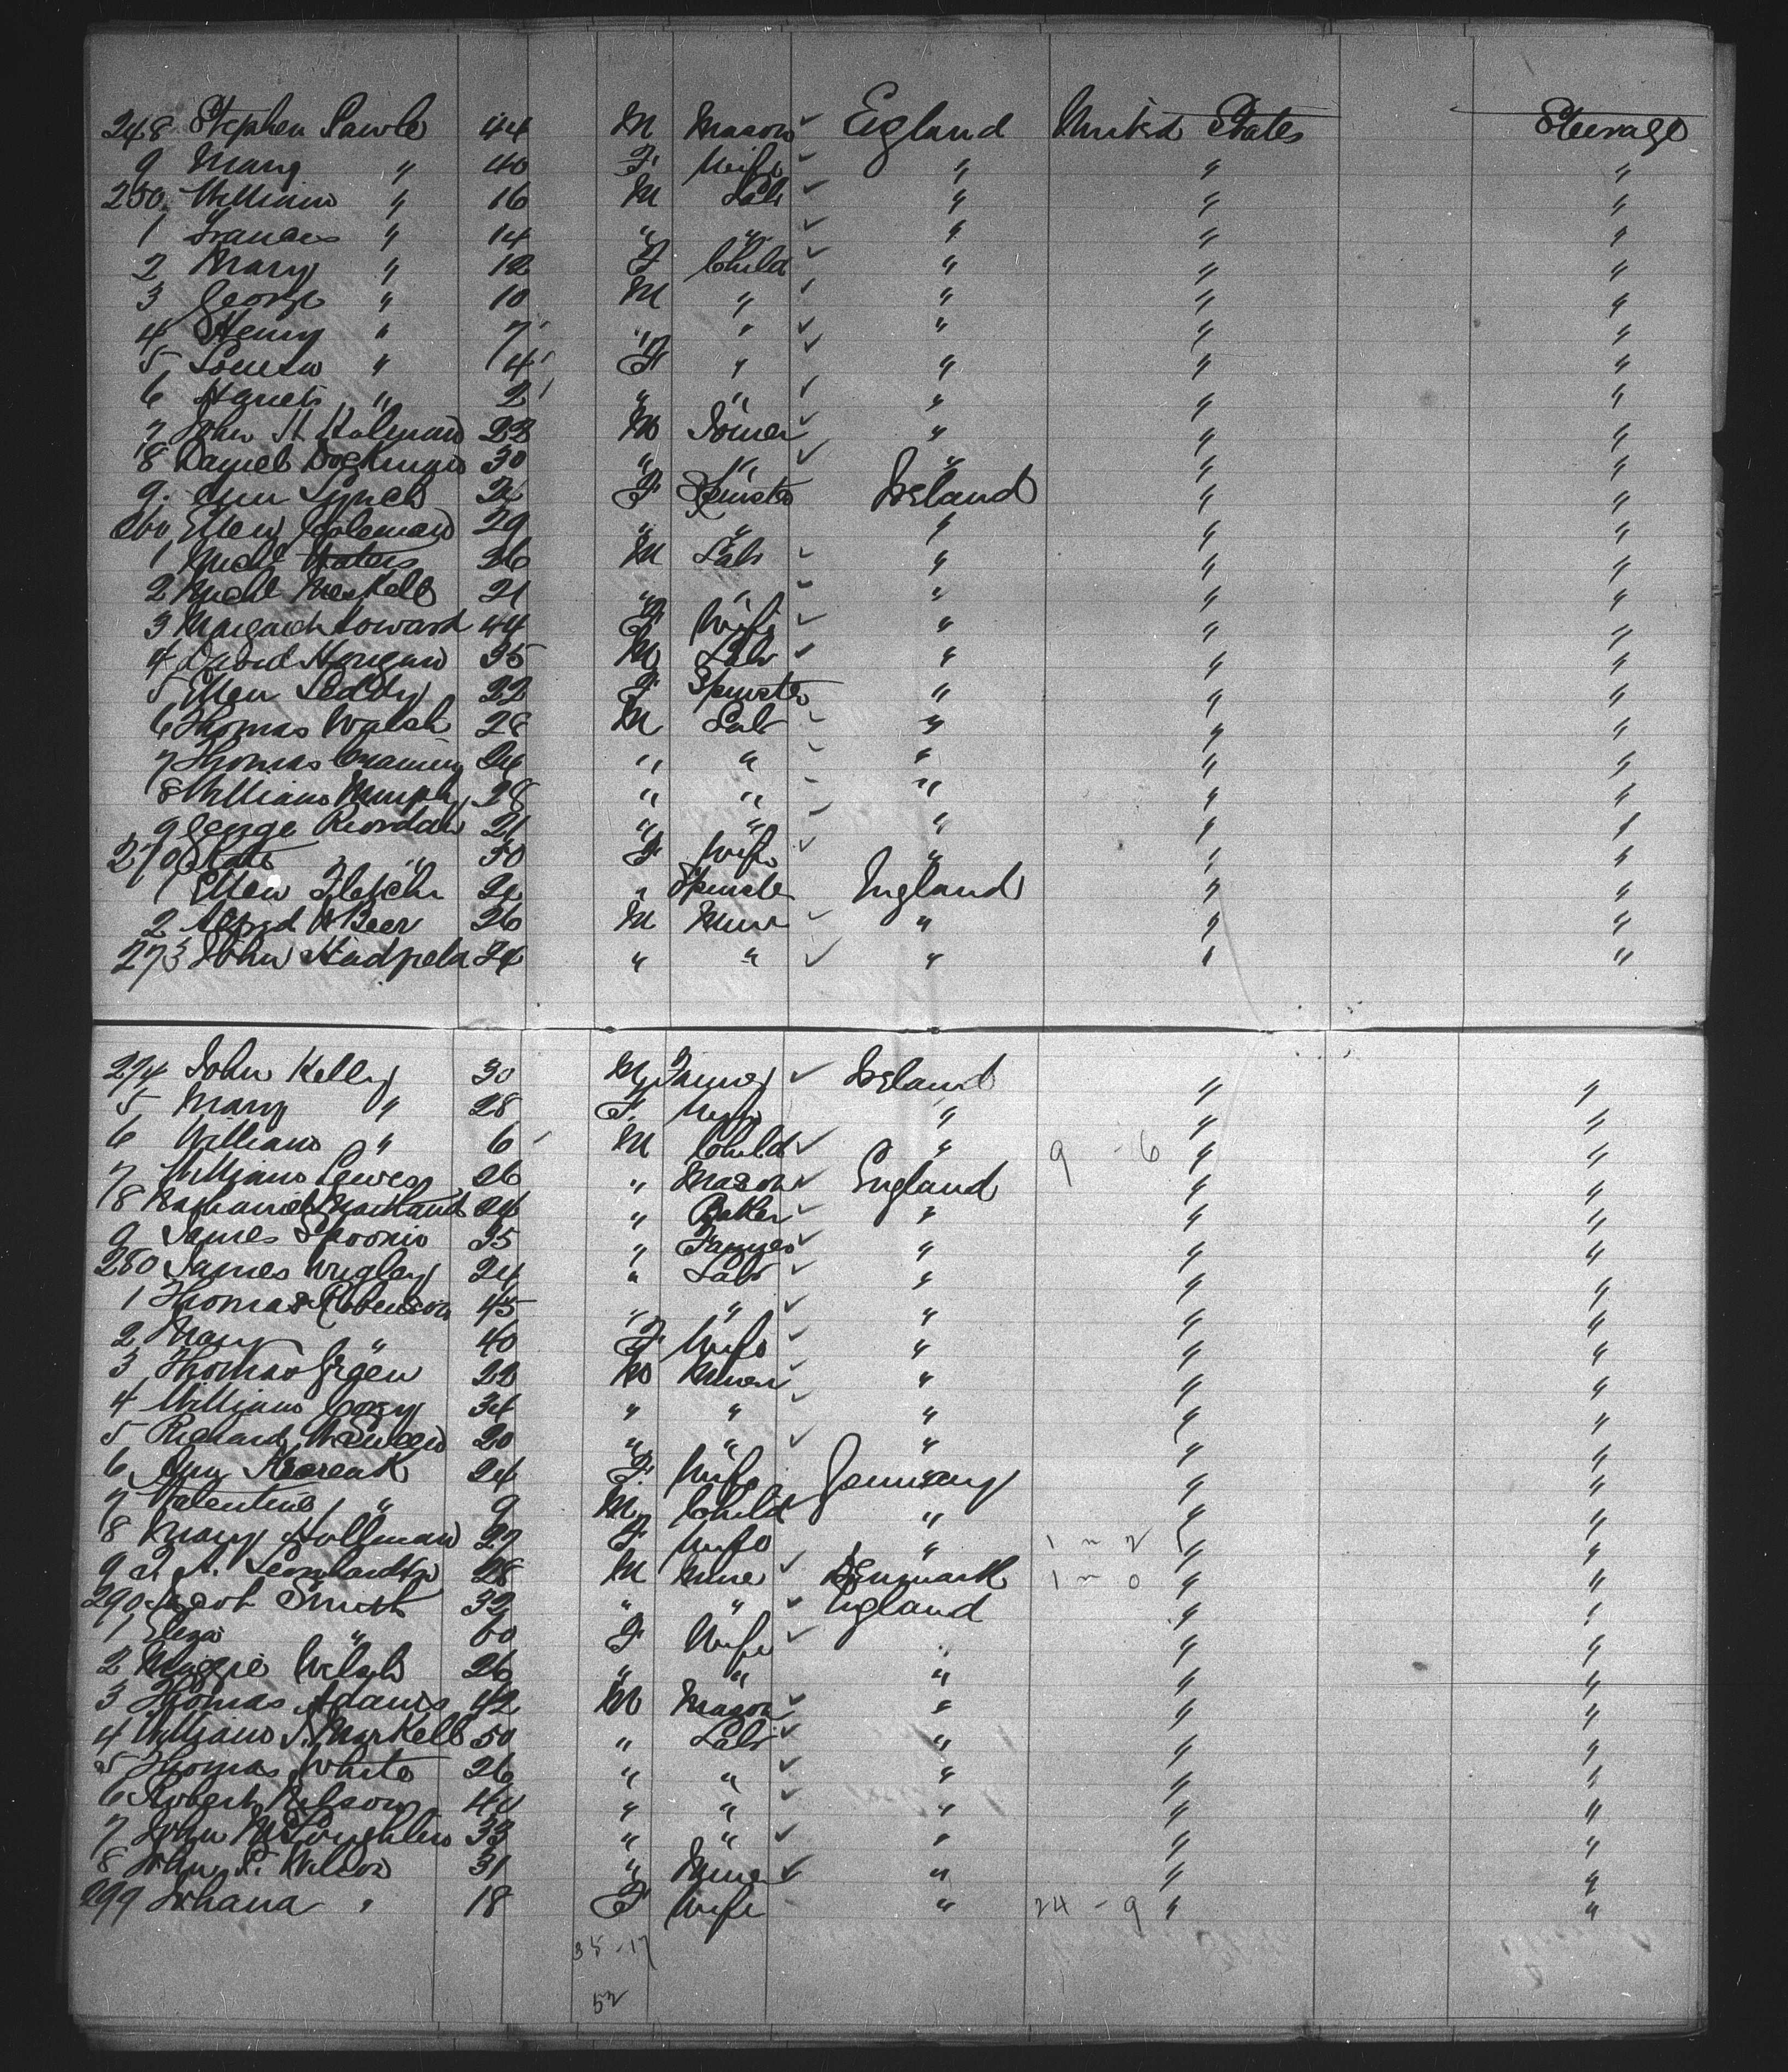 248 Stephen Sawle 44 M Mason ✓ England United States Steerage
9 Mary " 40 F Wife ✓ " " "
250 William " 16 M Labr ✓ " " "
1 Frances " 14 " " ✓ " " "
2 Mary " 12 F Child ✓ " " "
3 George " 10 M " ✓ " " "
4 Henry " 7 " " ✓ " " "
5 Louisa " 4 F " ✓ " " "
6 " 2 " " ✓ " " "
7 John H 22 M ✓ " " "
8 Daniel 30 " " ✓ " " "
9 Ann Lynch F Spinster Ireland " "
260 Ellen Coleman 29 " " " " "
1 Michl Waters 26 M Labr ✓ " " "
2 Michl Meskell 21 " " ✓ " " "
3 Margaret Howard 44 F Wife ✓ " " "
4 David Horgan 35 M Labr ✓ " " "
5 Ellen Leddy 22 F Spinster " " "
6 Thomas Walsh 28 M Labr ✓ " " "
7 Thomas 24 " " ✓ " " "
8 William Murphy 28 " " ✓ " " "
9 George Riordan 21 " " ✓ " " "
270 Kate " 30 F Wife ✓ " " "
1 Ellen Fletcher " Spinster England " "
2 Alfred W Beer 26 M Miner ✓ " " "
273 John 24 " " ✓ " " "
274 John Kelly 30 M Farmer ✓ Ireland " "
5 Mary " 28 F. Wife " " "
6 William " 6 M Child ✓ " 9 - 6 " "
7 William 26 " Mason ✓ England " "
8 Nathaniel 24 " Baker ✓ " " "
9 James 35 " Farmer ✓ " " "
280 James Wrigley 24 " Labr ✓ " " "
1 Thomas Robinson 45 " " ✓ " " "
2 Mary " 40 F Wife ✓ " " "
3 Thomas Green 22 M Miner ✓ " " "
4 William 34 " " ✓ " " "
5 Richard 20 " " ✓ " " "
6 24 F. Wife Germany " "
7 Valentine " 9 M Child " " "
8 Mary Hollman 27 F Wife " 1 - 2 " "
9 28 M Miner ✓ Denmark 1 - 0 " "
290 Jacob Smith 32 " " ✓ England " "
1 Eliza " 60 F Wife ✓ " " "
2 Maggie Welsh 26 " " " " "
3 Thomas Adams 42 M Mason ✓ " " "
4 William J. Markell 50 " Labr ✓ " " "
5 Thomas White 26 " " ✓ " " "
6 Robert " " ✓ " " "
7 John McLoughlin 33 " " ✓ " " "
8 John P. Wilson 31 " Miner ✓ " " "
299 Johana " 18 F Wife " 24 - 9 " "
35 - 17
52